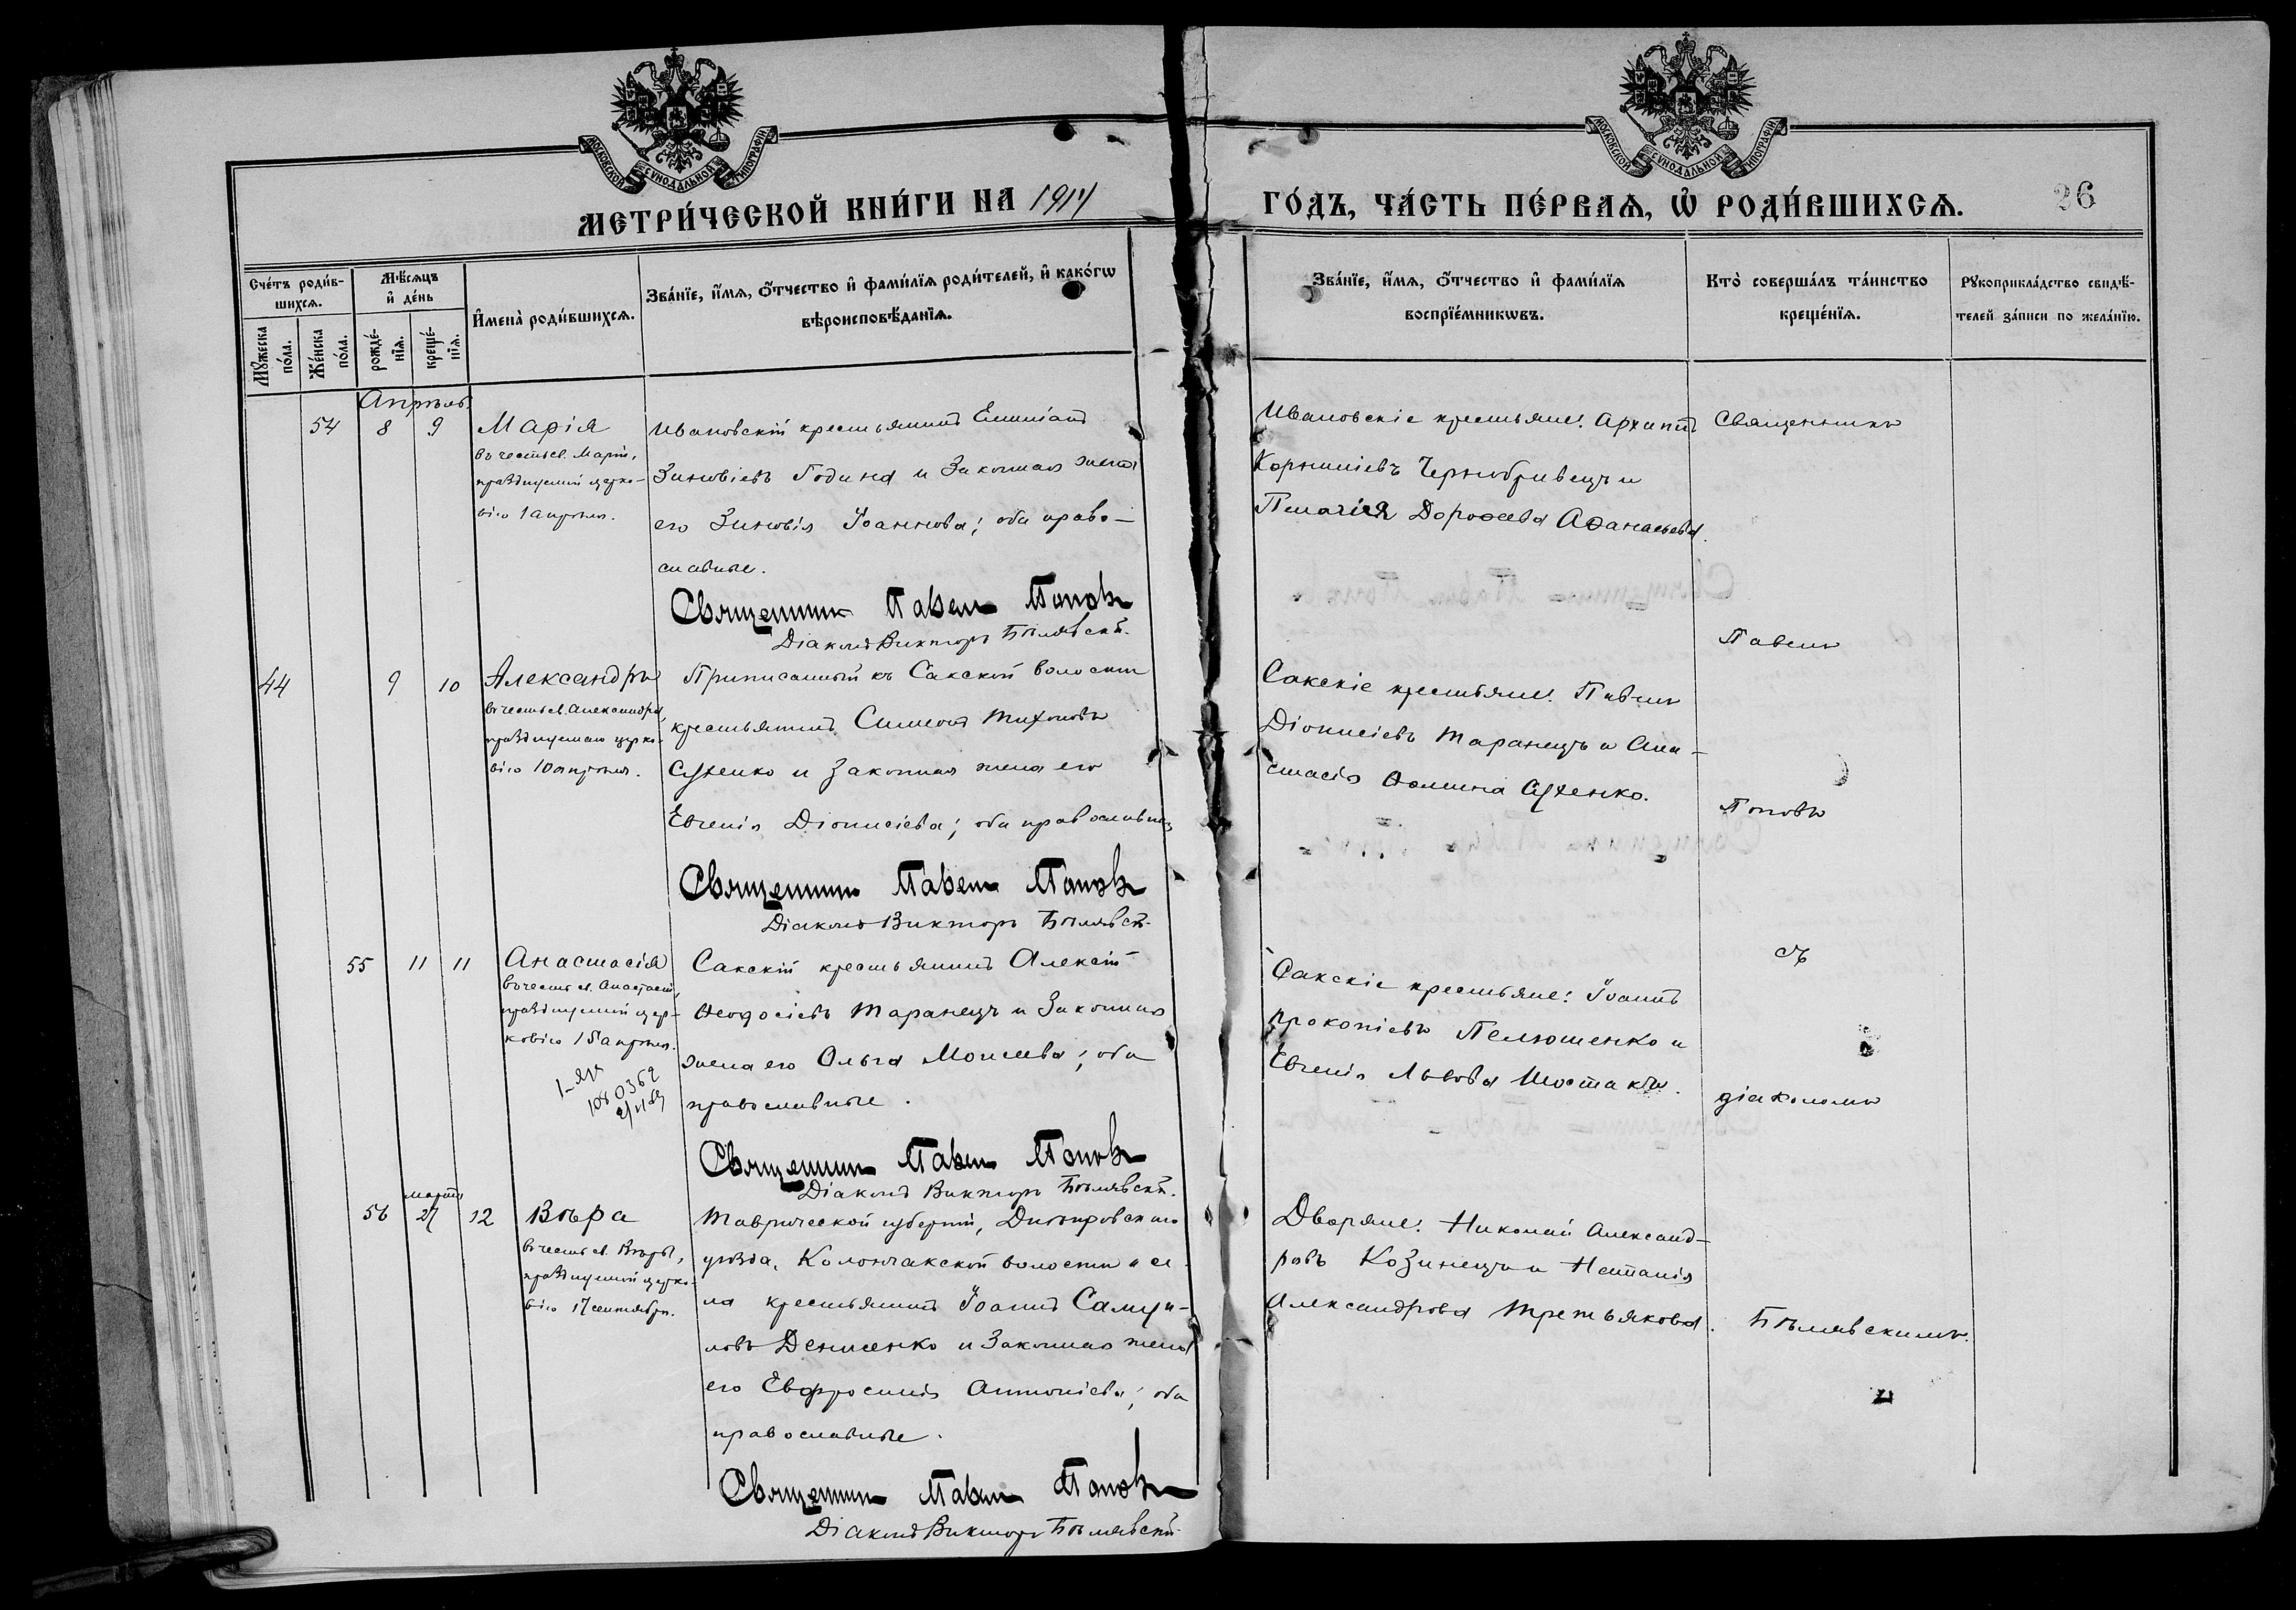 МОСКОВСКОЙ СѴНОДАЛЬНОЙ ТИПОГРАФІИ
МОСКОВСКОЙ СѴНОДАЛЬНОЙ ТИПОГРАФІИ
МЕТРИ́ЧЕСКОЙ КНИ́ГИ НА 1914
ГО́ДЪ, ЧА́СТЬ ПЕ́РВАѦ, Ѽ РОДИ́ВШИХСѦ.
26
Сче́тъ роди́в-
шихсѧ.
Мꙋ́жеска
по́ла.
Же́нска
по́ла.
Мѣ́сѧцъ
и҆ де́нь
рожде́-
нїѧ.
креще́-
нїѧ.
И҆мена̀ роди́вшихсѧ.
Зва́нїе, и҆́мѧ, ѻ҆́тчество и҆ фами́лїѧ роди́телей, и҆ како́гѡ
вѣроисповѣ́данїѧ.
Зва́нїе, и҆́мѧ, ѻ҆́тчество и҆ фами́лїѧ
воспрїе́мникѡвъ.
Кто̀ соверша́лъ та́инство
креще́нїѧ.
Рꙋкоприкла́дство свидѣ́-
телей за́писи по жела́нїю.
Апрѣль.
54 8 9
Марія
въ честь св. Маріи,
празднуемой церко-
вію 1 апрѣля.
Ивановскій крестьянинъ
Зиновіевъ Година и законная жена
его Зиновія Іоаннова; оба право-
славные.
Священникъ Павелъ Поповъ
Діаконъ Викторъ Бѣлявскій.
Ивановскіе крестьяне: Архипъ
Корниліевъ Чернобривецъ и
Пелагія Дороѳеева Аѳанасьева.
Священникъ
Павелъ
44 9 10
Александръ
въ честь св. Александра,
празднуемаго церко-
вію 10 апрѣля.
Приписанный къ Сакской волости
крестьянинъ Симеонъ Тихоновъ
Сухенко и законная жена его
Евгенія Діонисіева; оба православные
Священникъ Павелъ Поповъ
Діаконъ Викторъ Бѣлявскій.
Сакскіе крестьяне: Павелъ
Діонисіевъ Таранецъ и Ана-
стасія Ѳомина Сухенко.
Поповъ
55 11 11
Анастасія
въ честь св. Анастасіи,
празднуемой цер-
ковію 15 апрѣля.
Сакскій крестьянинъ Алексій
Ѳеодосіевъ Таранецъ и законная
жена его Ольга Моисеева; оба
православные.
Священникъ Павелъ Поповъ
Діаконъ Викторъ Бѣлявскій.
Сакскіе крестьяне: Іоаннъ
Прокопіевъ Пелюшенко и
Евгенія Львова Шостакъ.
съ
діакономъ
56 марта 27 12
Вѣра
въ честь св. Вѣры,
празднуемой церко-
вію 17 сентября.
Таврической губерніи, Днѣпровскаго
уѣзда, Колончакской волости и се-
ла крестьянинъ Іоаннъ Самуи-
ловъ Денисенко и законная жена
его Евфросинія Антоніева; оба
православные.
Священникъ Павелъ Поповъ
Діаконъ Викторъ Бѣлявскій.
Дворяне: Николай Александ-
ровъ Козинецъ и Наталія
Александрова Третьякова.
Бѣлявскимъ.